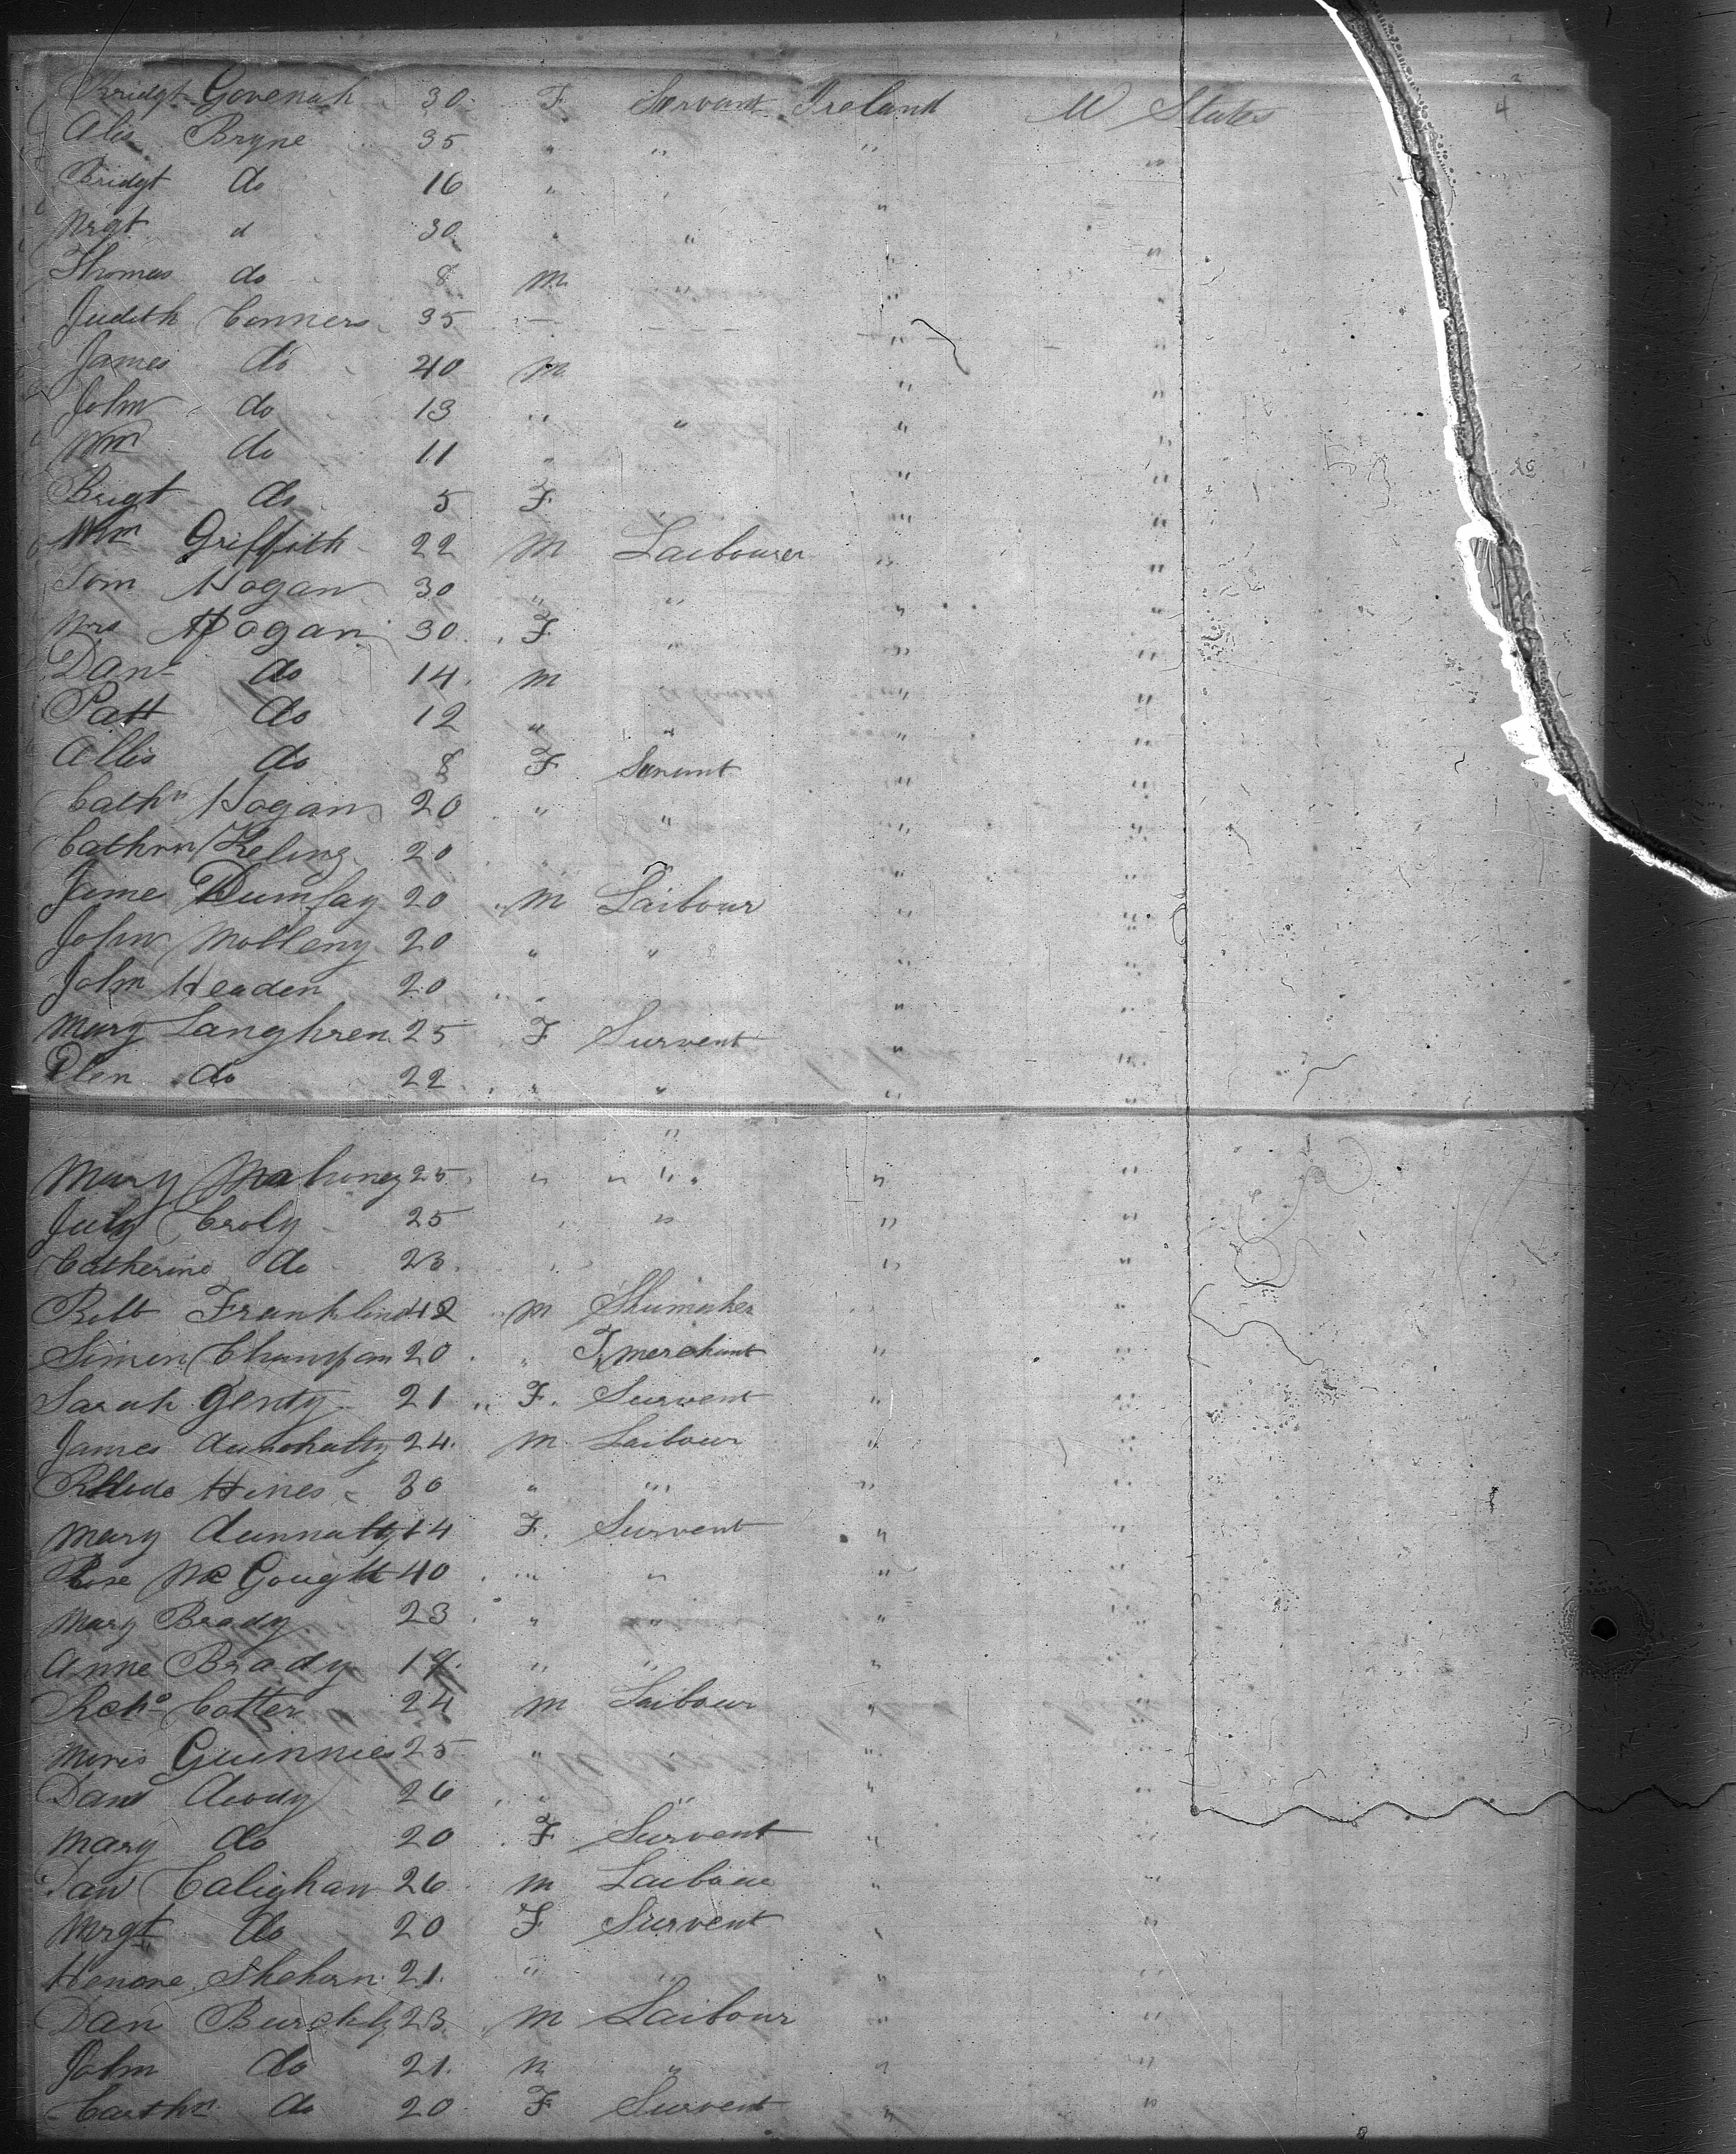 Bridgt Govenah 30 F Servant Ireland U States
Alis Bryne 35 " " " "
Bridgt do 16 " "
Mrgt d 30 " " " "
Thomas do 8 M " " "
Judith Conners 35 — - - - " "
James do 40 M " "
John do 13 " " " "
Wm do 11 " " "
Brigt do 5 F " "
Wm Griffith 22 M Laibourer " "
Tom Hogan 30 " " " "
Mrs Hogan 30 F " " "
Danl do 14 M " "
Patt do 12 " " " "
Allis do 8 F Servant " "
Cathn Hogan 20 " " " "
Cathrn Keling 20 " "
Jame 20 M Laibour " "
John 20 " " " "
John Headen 20 " " "
Mary Langhren 25 F Survent " "
Elen do 22 " " " "
Mary Mahoney 25 " " " " "
July Croly 25 " " " "
Catherine do 23 " " "
Robt Franklin 42 M Shumaker " "
Simon 20 " T merchant " "
Sarah Genty 21 F. Survent " "
James 24 M Laibour " "
Hines 30 " " " "
Mary 14 F. Survent " "
Rose Mc Gough 40 " " " "
Mary Brady 23 " " " "
Anne Brady 19 " " " "
Richd Cotter 24 M Laibour " "
Moris Guinnies 25 " " "
Danl 26 " " " "
Mary do 20 F Survent " "
Dan Calighan 26 M Laibour " "
Mrgt do 20 F Survent " "
Honore Shehan 21 " " " "
Dan Burckly 23 M Laibour " "
John do 21 M " " "
Carthn do 20 F Survent " "